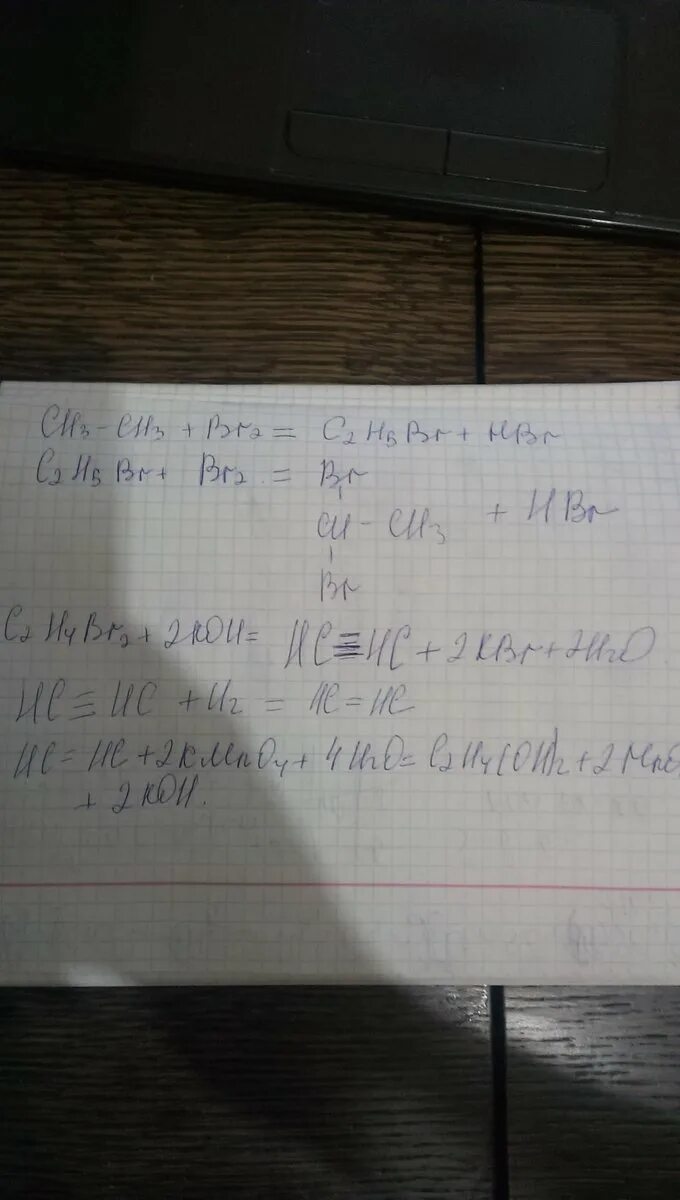 CH₃-CH₃ + Br₂ = C₂H₅Br + HBr
C₂H₅Br + Br₂ = Br
CH - CH₃ + HBr
Br
C₂H₄Br₂ + 2KOH = HC≡HC + 2KBr + 2H₂O
HC≡HC + H₂ = HC=HC
HC=HC + 2KMnO₄ + 4H₂O = C₂H₄(OH)₂ + 2MnO
+ 2KOH.